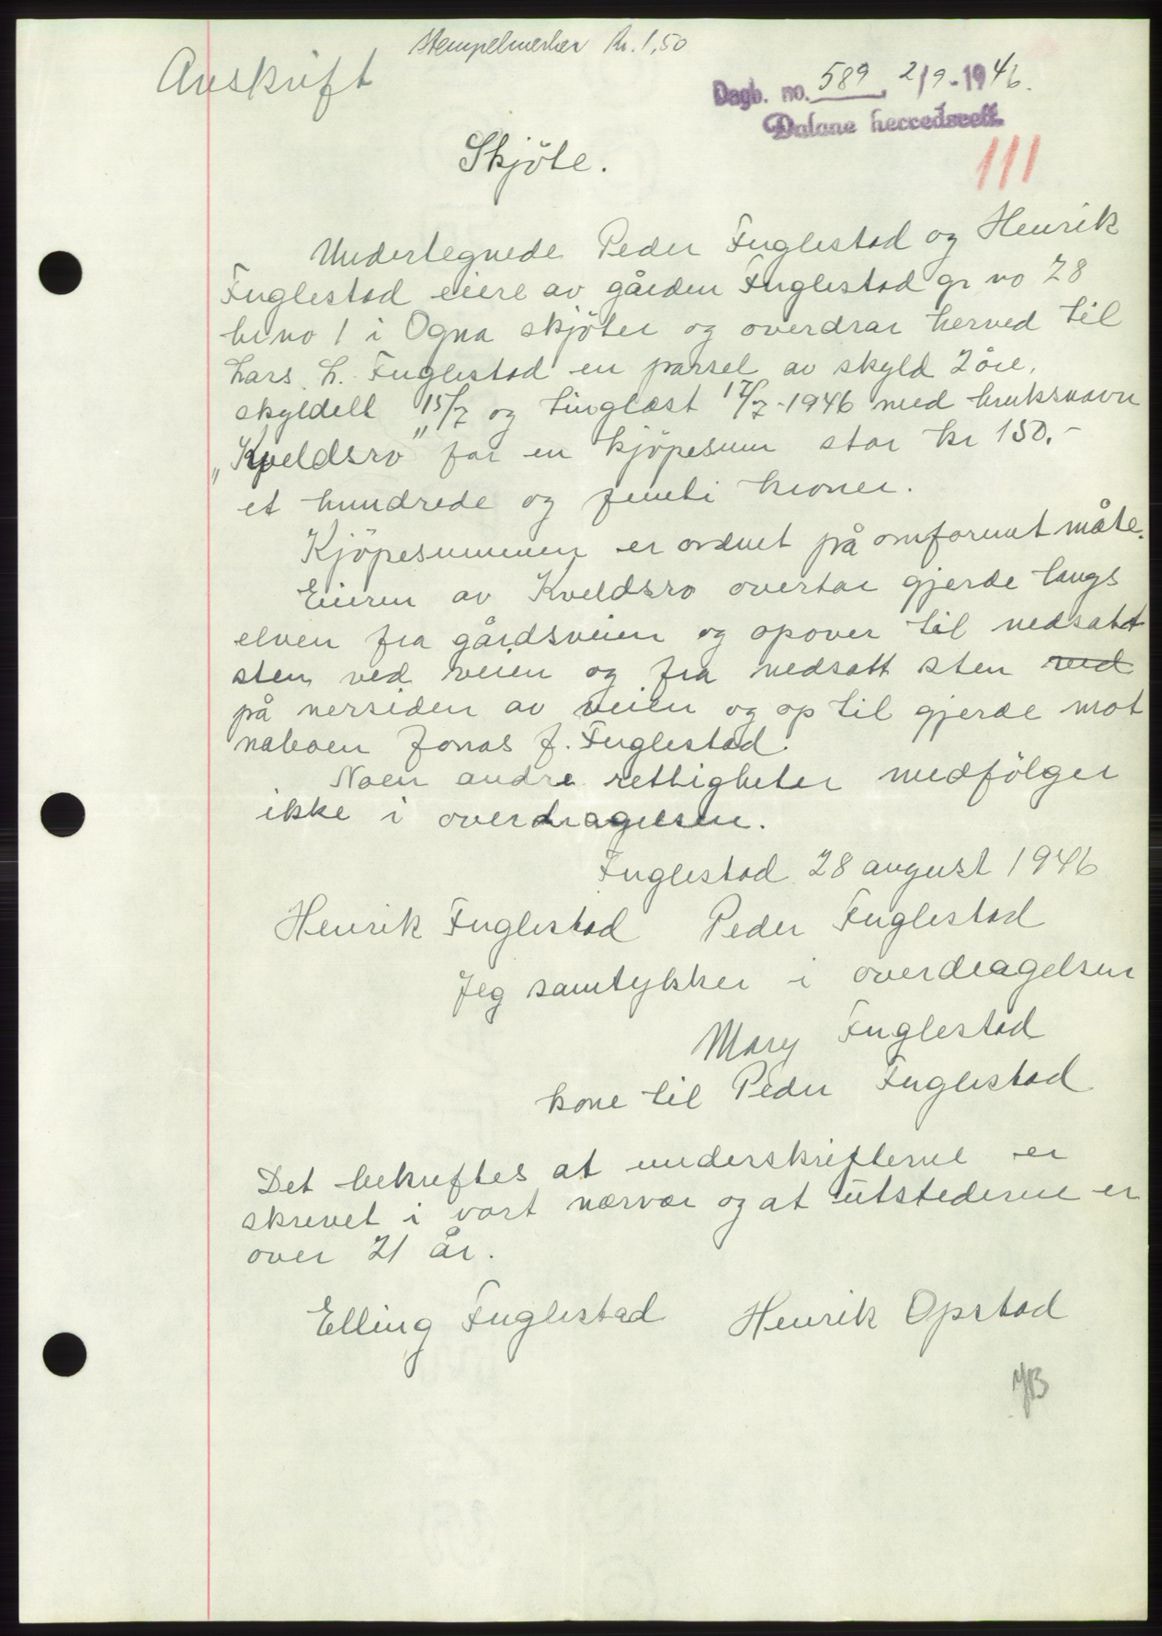 Stempelmerker Kr. 1,50
Avskrift
Dagb. no. 589, 2/9-1946.
Dalane herredsrett.
111
Skjöte.
Undertegnede Peder Fuglestad og Henrik
Fuglestad eiere av gården Fuglestad gr no 28
br no 1 i Ogna skjöter og overdrar herved til
Lars L. Fuglestad en parsel av skyld 2 öre,
skyldelt 15/7 og tinglæst 17/7-1946 med bruksnavn
„Kveldsro" for en kjöpesum stor kr 150.-
et hundrede og femti kroner.
Kjöpesummen er ordnet på omforent måte.
Eieren av Kveldsro overtar gjerde langs
elven fra gårdsveien og opover til nedsatt
sten ved veien og fra nedsatt sten ved
på nersiden av veien og op til gjerde mot
naboen Jonas J. Fuglestad.
Noen andre rettigheter medfölger
ikke i overdragelsen.
Fuglestad 28 august 1946
Henrik Fuglestad Peder Fuglestad
Jeg samtykker i overdragelsen
Mary Fuglestad
kone til Peder Fuglestad
Det bekreftes at underskrifterne er
skrevet i vort nærvær og at utstederne er
over 21 år.
Elling Fuglestad Henrik Opstad